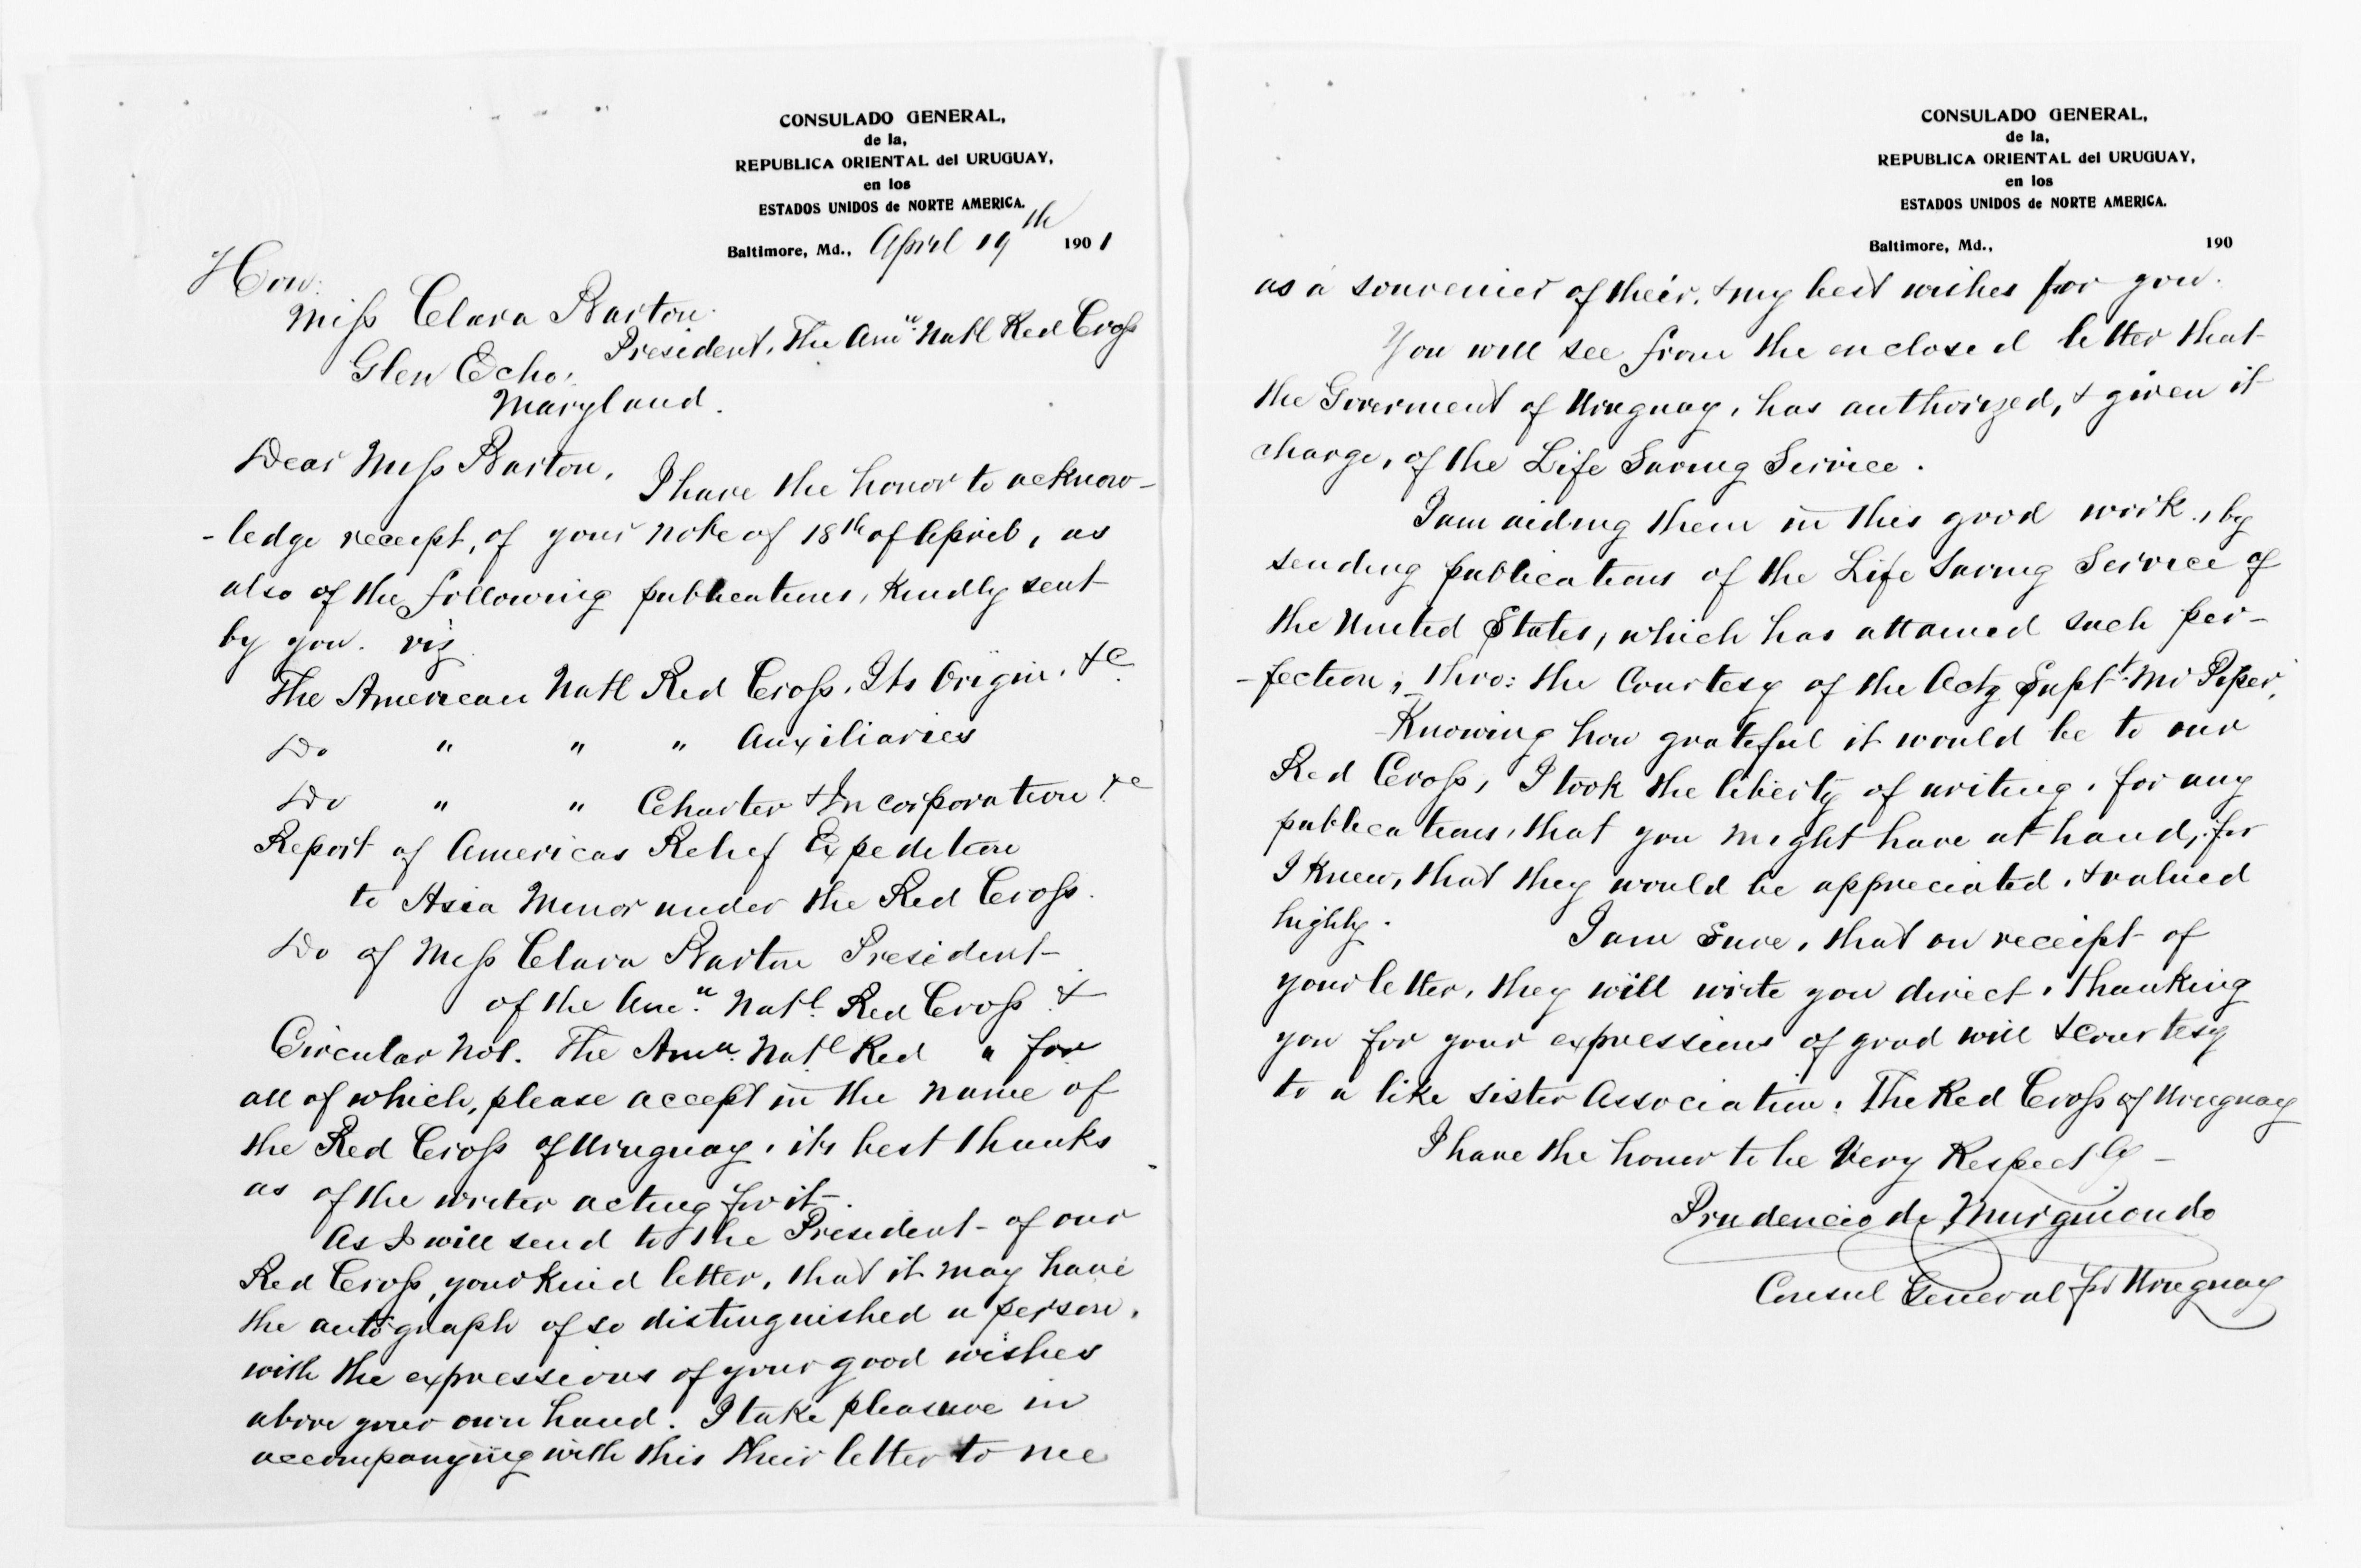 CONSULADO GENERAL,
de la,
REPUBLICA ORIENTAL del URUGUAY,
en los
ESTADOS UNIDOS de NORTE AMERICA.
Baltimore, Md., April 19th 1901
Hon:
Miss Clara Barton.
President, The Amn. Natl Red Cross
Glen Echo,
Maryland.
Dear Miss Barton,
I have the honor to acknow-
-ledge receipt, of your note of 18th of April, as
also of the following publications, kindly sent
by you. viz
The American Natl Red Cross, Its Origin, &c
Do " " " Auxiliaries
Do " " Charter & Incorporation &c
Report of Americas Relief Expedition
to Asia Minor under the Red Cross.
Do of Miss Clara Barton President
of the Amn. Natl. Red Cross &
Circular No1. The Amn. Natl Red " for
all of which, please accept in the name of
the Red Cross of Uruguay, its best thanks
as of the writer acting for it.
As I will send to the President of our
Red Cross, your kind letter, that it may have
the autograph of so distinguished a person,
with the expressions of your good wishes
above your own hand. I take pleasure in
accompanying with this their letter to me
CONSULADO GENERAL,
de la,
REPUBLICA ORIENTAL del URUGUAY,
en los
ESTADOS UNIDOS de NORTE AMERICA.
Baltimore, Md., 190
as a souvenier of their, & my best wishes for you.
You will see from the enclosed letter that
the Goverment of Uruguay, has authorized, & given it
charge, of the Life Saving Service.
I am aiding them in this good work, by
sending publications of the Life Saving Service of
the United States, which has attained such per-
-fection, thro: the Courtesy of the Actg Supt. Mr Piper,
Knowing how grateful it would be to our
Red Cross, I took the liberty of writing, for any
publications, that you might have at hand, for
I knew, that they would be appreciated, & valued
highly.
I am sure, that on receipt of
your letter, they will write you direct, thanking
you for your expressions of good will & courtesy
to a like sister Association, The Red Cross of Uruguay
I have the honor to be Very Respectly
Prudencio de Murguiondo
Consul General for Uruguay